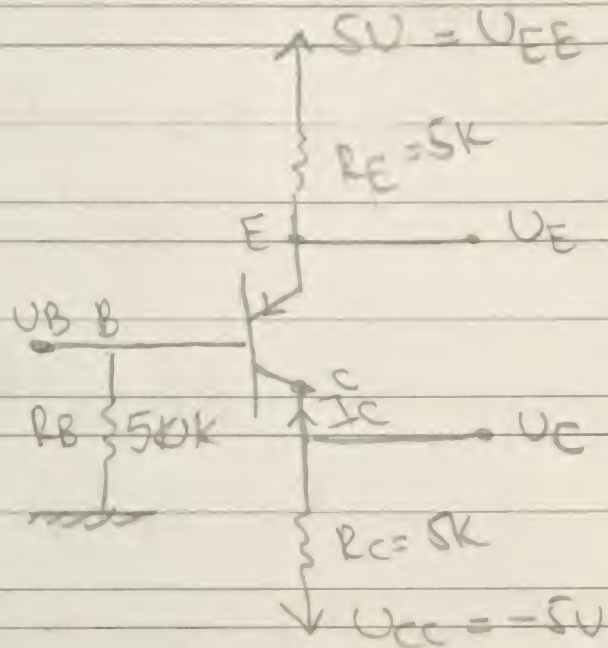 5V = VEE
RE = 5K
E VE
VB B
C
IC
RB 50K
VC
RC = 5K
VCC = -5V